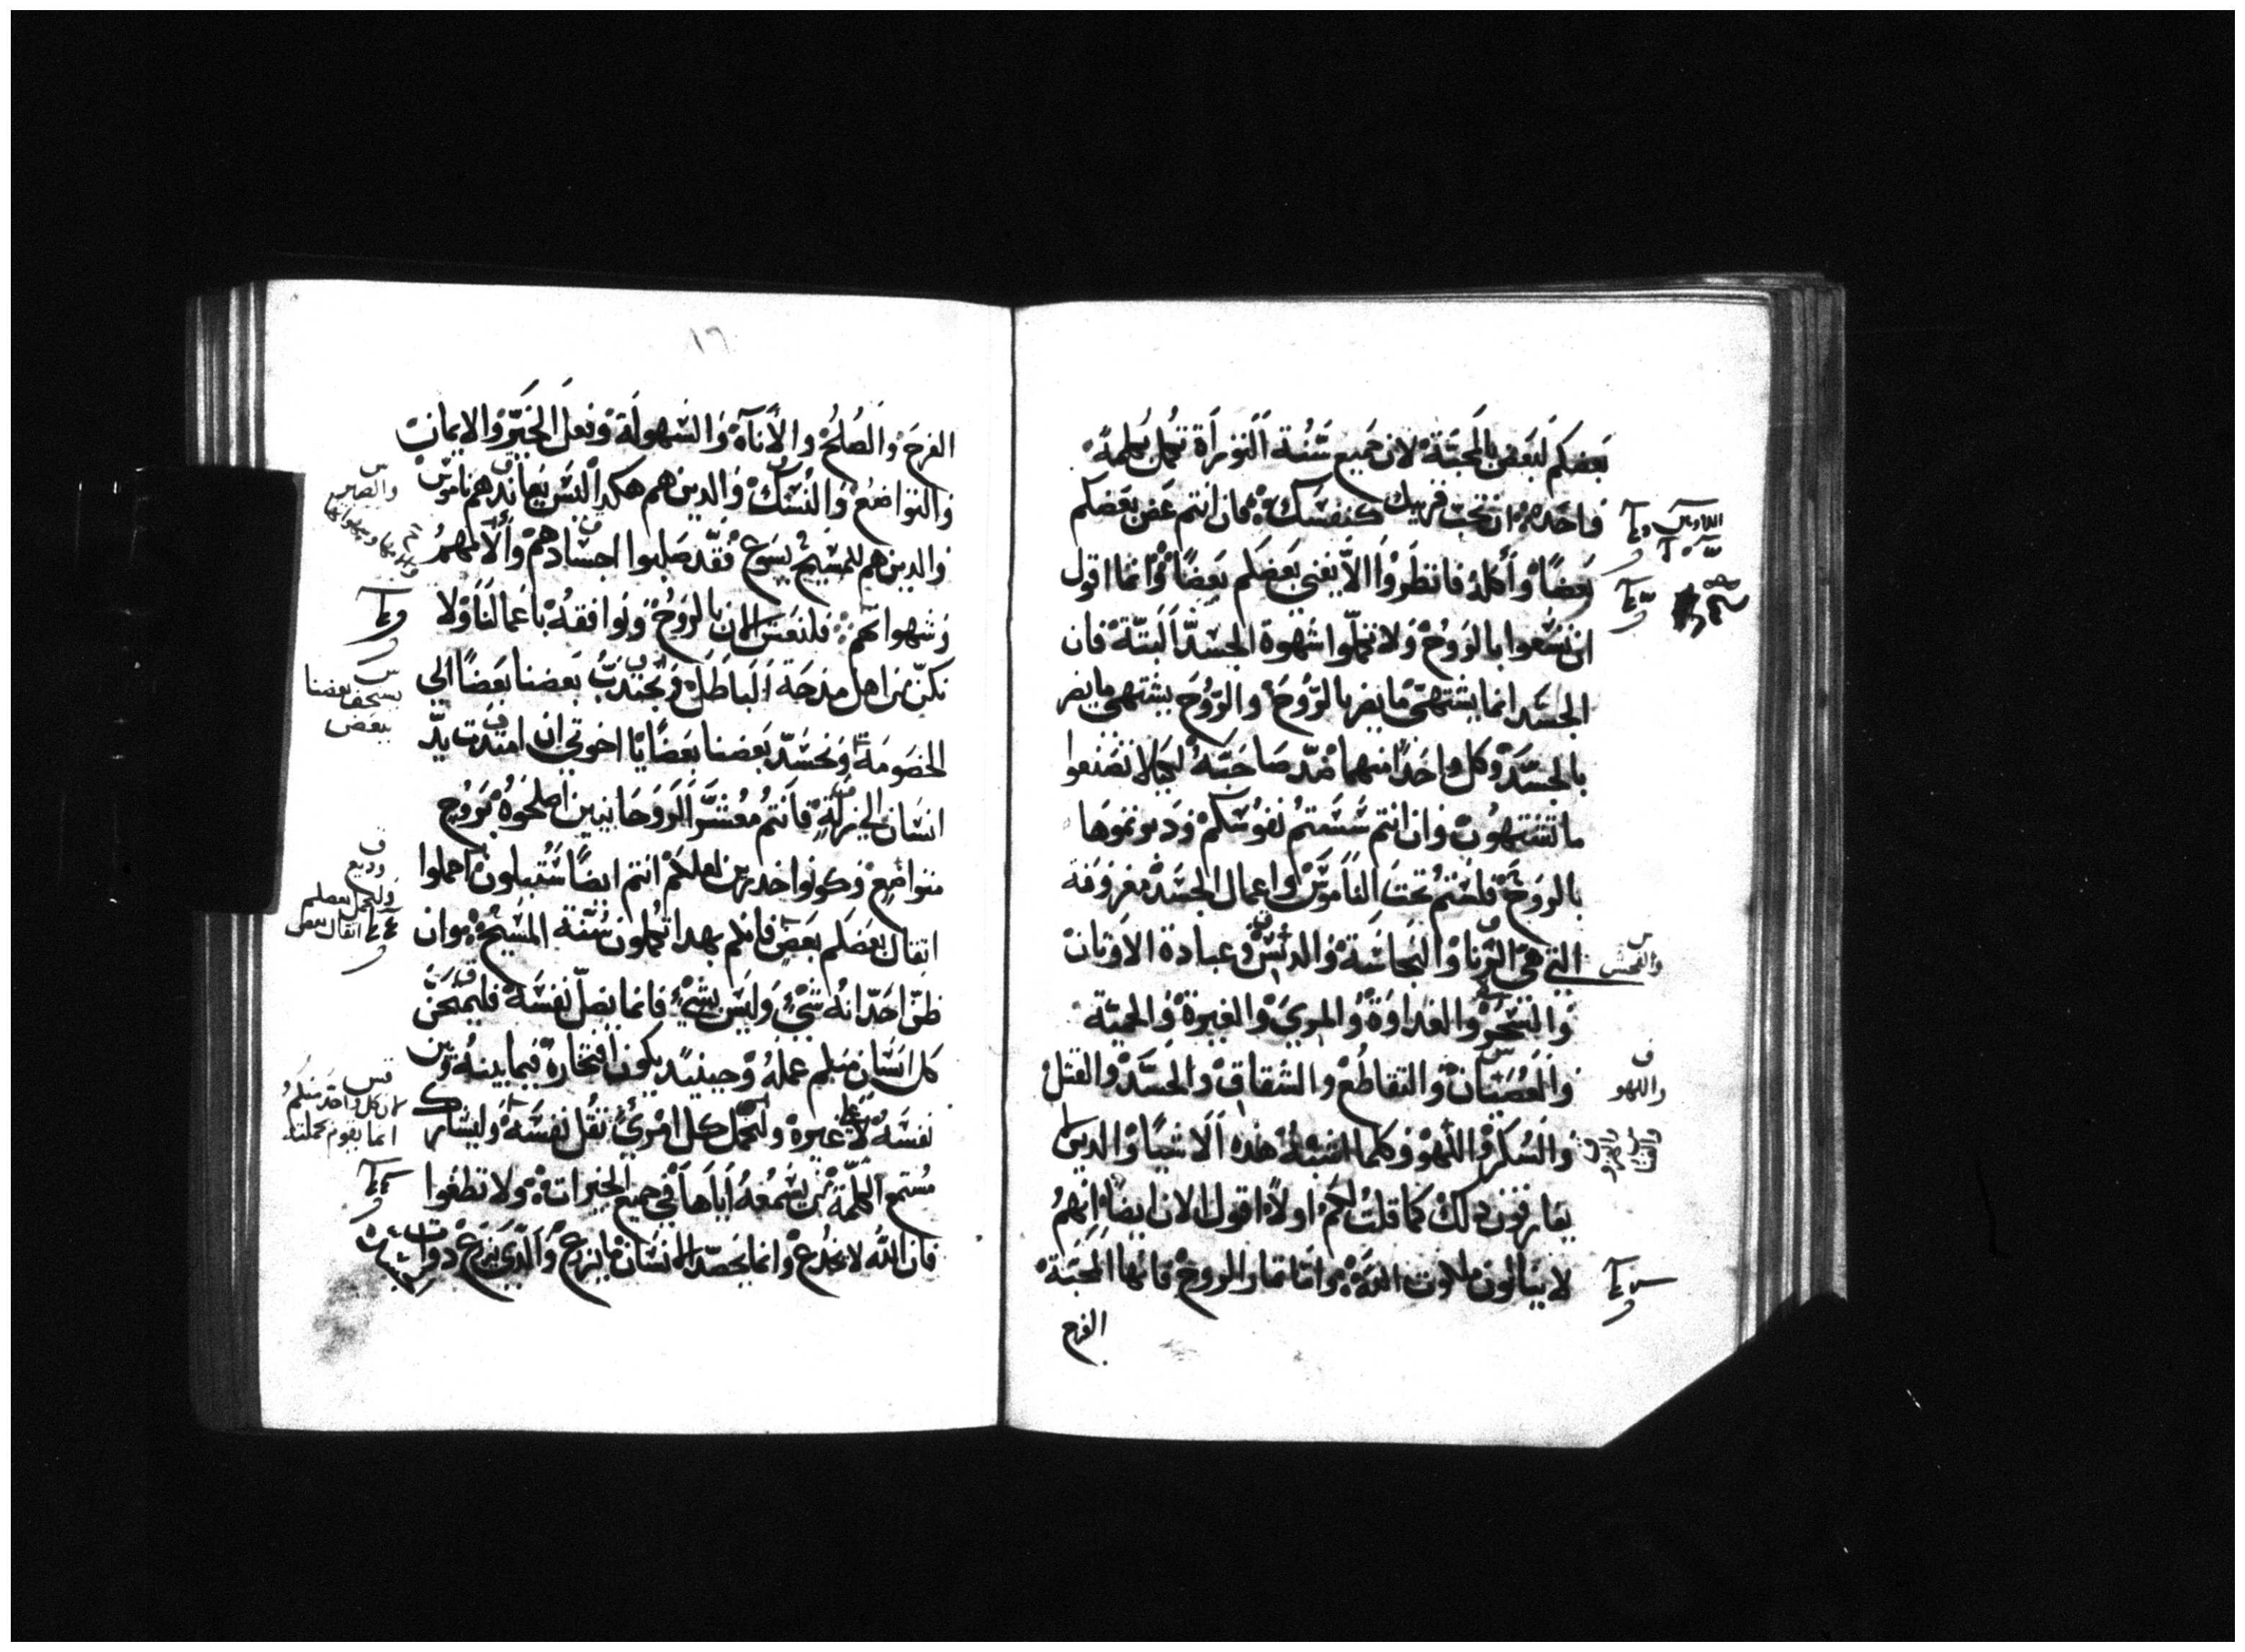 بعضكم لبعض بالمحبة لان جميع سنة التوراة تكمل بكلمة
واحدة ان تحب قريبك كنفسك فان انتم عض بعضكم
بعضًا واكله فانظروا الا يفني بعضكم بعضًا وانما اقول
ان تسعوا بالروح ولا تكملوا شهوة الجسد البتة فان
الجسد انما يشتهي ما يضر بالروح والروح يشتهي ما يضر
بالجسد وكل واحد منهما ضد صاحبه لكيلا تصنعوا
ما تشتهون وان انتم سستم نفوسكم ودبرتموها
بالروح فلستم تحت الناموس واعمال الجسد معروفة
التي هي الزنا والنجاسة والدنس وعبادة الاوتان
والسحر والعداوة والمري والغيرة والحمية
والعصيان والتقاطع والشقاق والحسد والقتل
والسكر واللهو وكلما اشبه هذه الاشيا والدين
يقارفون دلك كما قلت لكم اولًا اقول الان ايضا انهم
لا ينالون ملكوت الله واما تمار الروح فانها المحبة
الفرح
والفحش
واللهو
١٦
الفرح والصلح والاناة والسهولة وفعل الخير والايمان
والتواضع والنسك والدين هم هكدا ليس يعاندهم ناموس
والدين هم للمسيح يسوع فقد صلبوا اجسادهم والامهم
وشهواتهم فلنعش الان بالروح ونوافقه باعمالنا ولا
نكن من اهل مدحة الباطل ويجتدب بعضنا بعضًا الي
الخصومة ونحسد بعضنا بعضًا يا اخوتي ان امتدت يد
انسان الي زلة فانتم معشر الروحانيين اصلحوه بروح
متواضع وكونوا حدرين لعلكم انتم ايضًا ستبلون احملوا
اتقال بعضكم بعض فانكم بهدا تكملون سنة المسيح وان
ظن احد انه شي وليس بشي فانما يضل نفسه فليمتحن
كل انسان منكم عمله وحينيد يكون افتخاره فيما بينه وبين
نفسه لا غيره وليحمل كل امري تقل نفسه وليشارك
مستمع الكلمة من يسمعه اياها في جميع الخيرات ولا تطغوا
فان الله لا يخدع وانما يحصد الانسان ما يزرع والدي يزرع دوات
والصبر
يسخف بعضنا
ببعض
وديع
وليحمل بعضكم
اتقال بعض
لان كل واحد منكم
انما يقوم بحملته